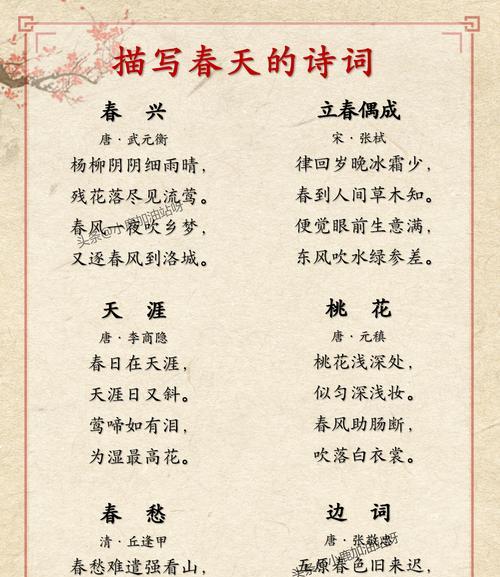 描写春天的诗词
春 兴
唐·武元衡
杨柳阴阴细雨晴，
残花落尽见流莺。
春风一夜吹乡梦，
又逐春风到洛城。
立春偶成
宋·张栻
律回岁晚冰霜少，
春到人间草木知。
便觉眼前生意满，
东风吹水绿参差。
天 涯
唐·李商隐
春日在天涯，
天涯日又斜。
莺啼如有泪，
为湿最高花。
桃 花
唐·元稹
桃花浅深处，
似匀深浅妆。
春风助肠断，
吹落白衣裳。
春 愁
清·丘逢甲
春愁难遣强看山，
边 词
唐·张敬忠
五原春色旧来迟，
头条@小鹿加油站呀
头条@小鹿加油站呀